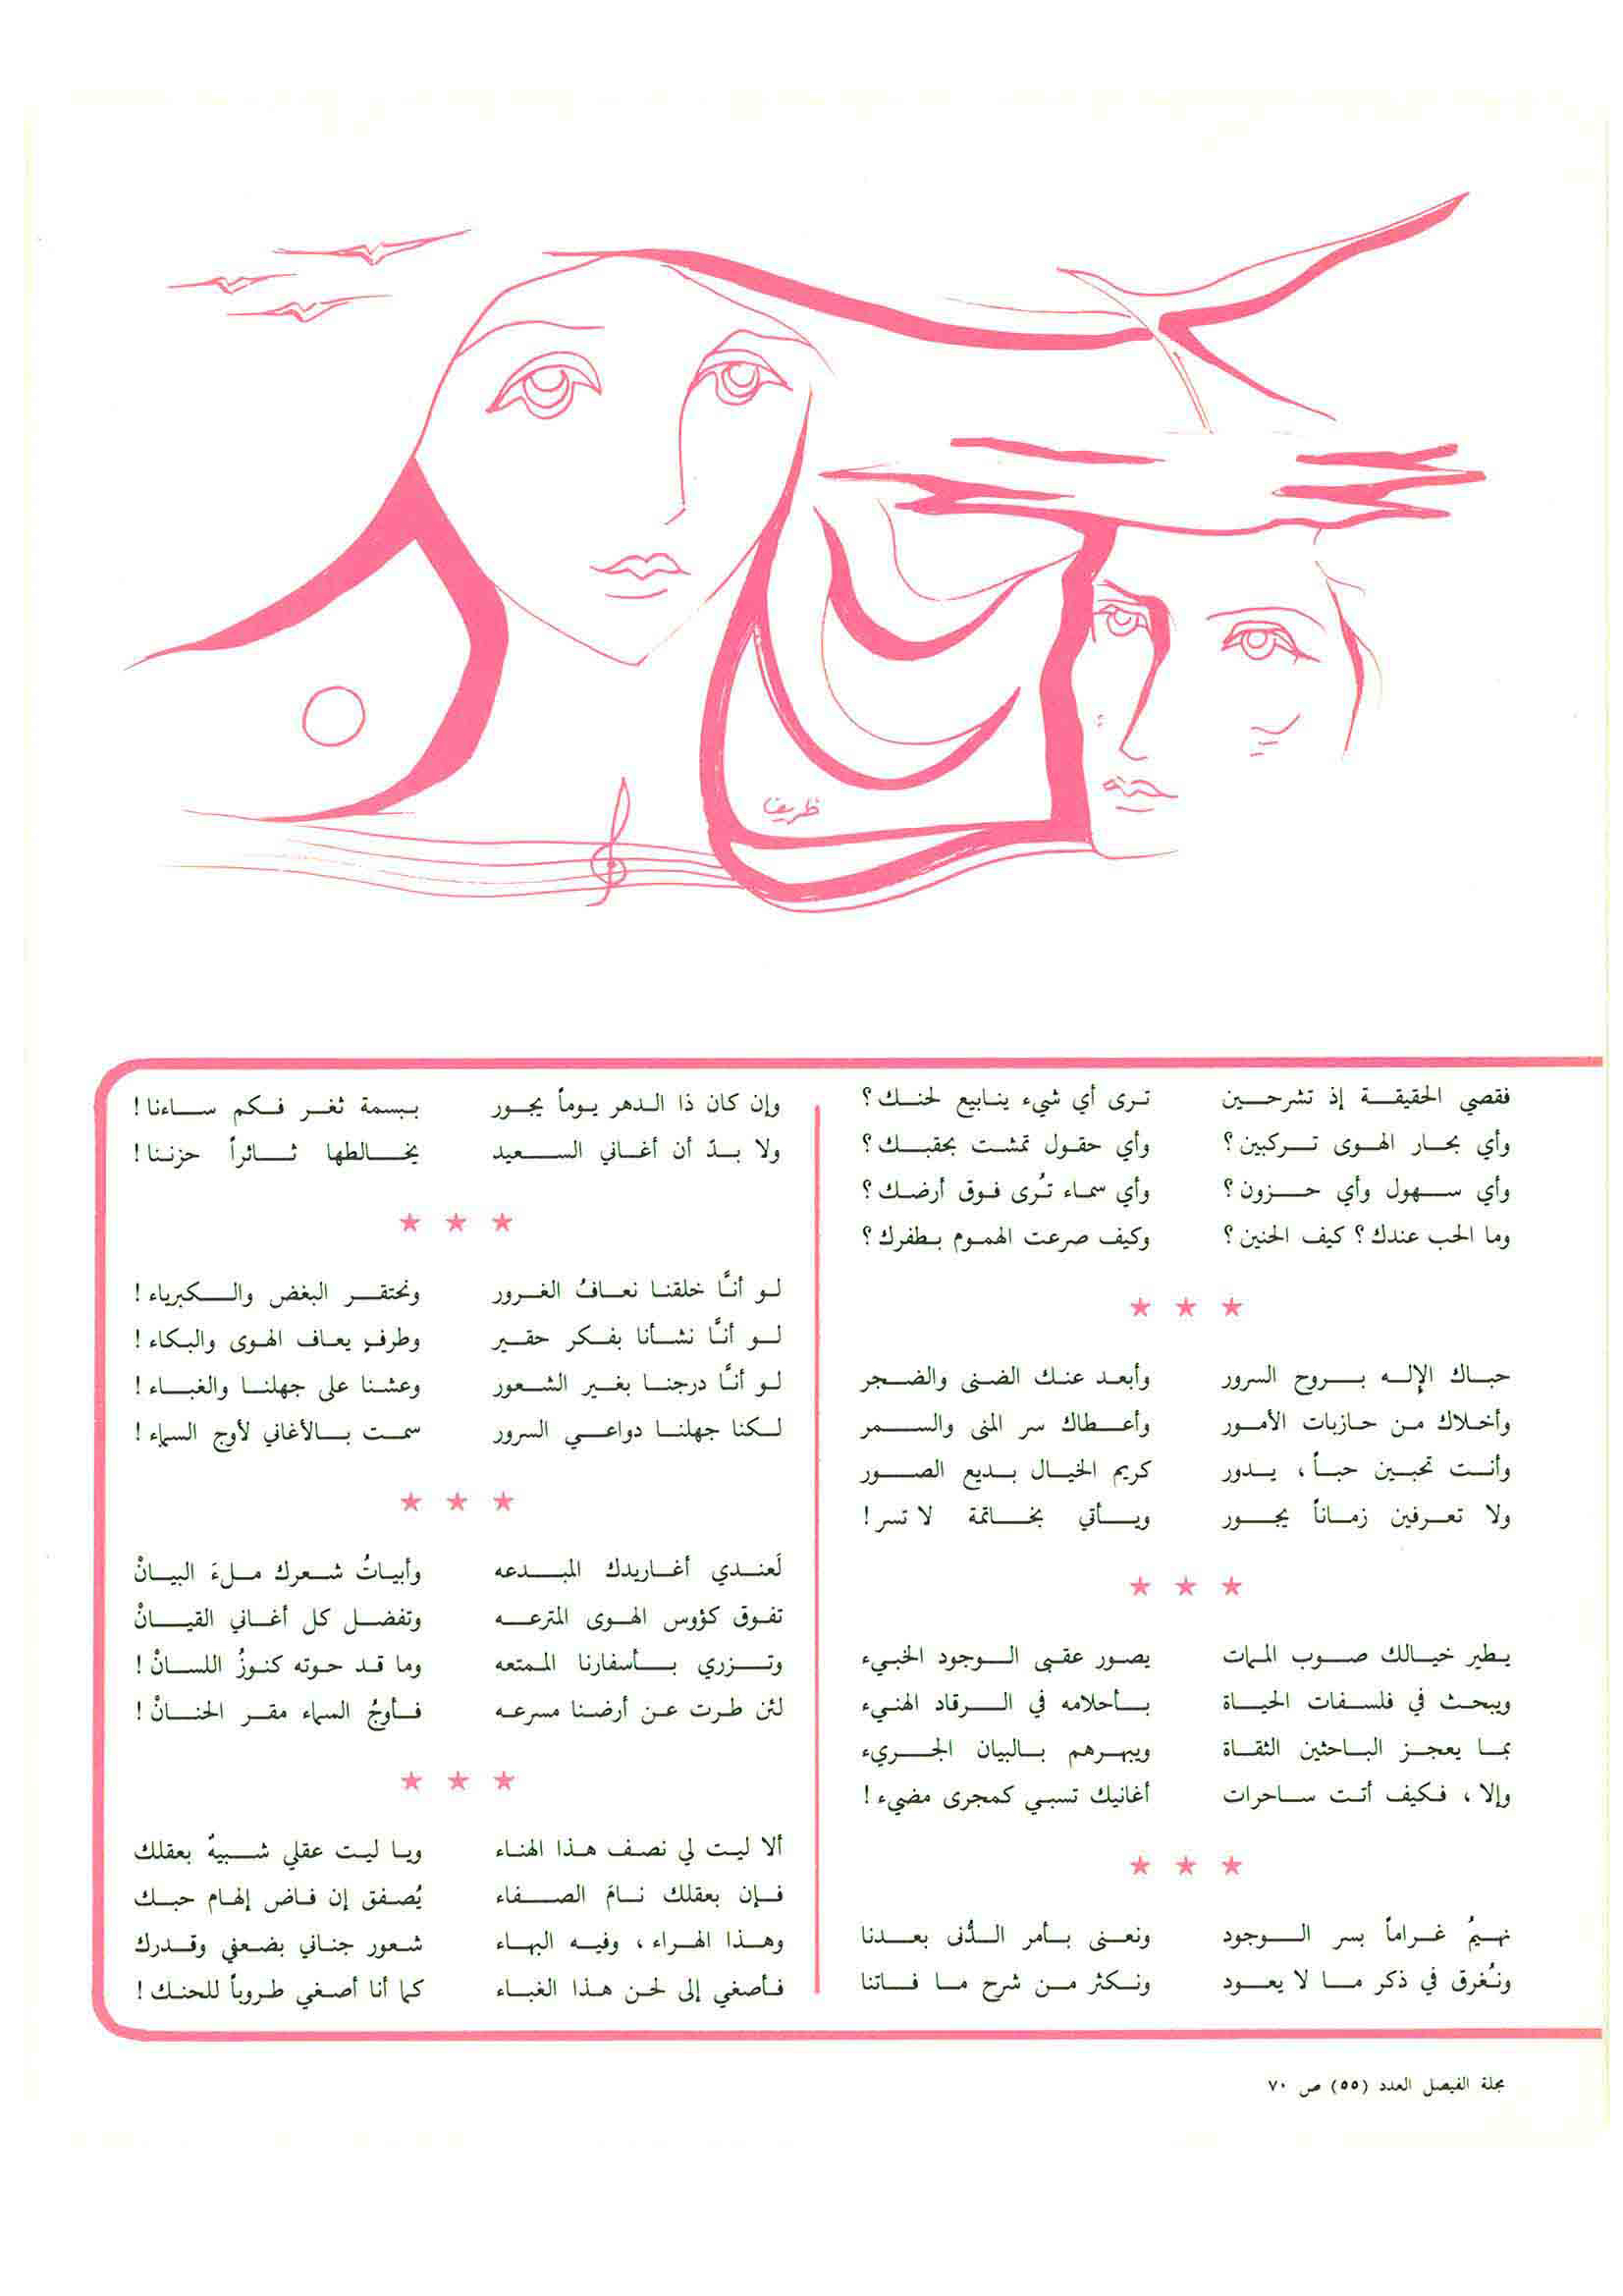 ظريفا
فقصي الحقيقة إذ تشرحين ترى أي شيء ينابيع لحنك؟
وأي بحار الهوى تركبين؟ وأي حقول تمشت بحقبك؟
وأي سهول وأي حزون؟ وأي سماء تُرى فوق أرضك؟
وما الحب عندك؟ كيف الحنين؟ وكيف صرعت الهموم بطفرك؟
★ ★ ★
حباك الإله بروح السرور وأبعد عنك الضنى والضجر
وأخلاك من حازبات الأمور وأعطاك سر المنى والسمر
وأنت تحبين حباً، يدور كريم الخيال بديع الصور
ولا تعرفين زماناً يجور ويأتي بخاتمة لا تسر!
★ ★ ★
يطير خيالك صوب الممات يصور عقبى الوجود الخبيء
ويبحث في فلسفات الحياة بأحلامه في الرقاد الهنيء
بما يعجز الباحثين الثقاة ويبهرهم بالبيان الجريء
وإلا، فكيف أتت ساحرات أغانيك تسبي كمجرى مضيء!
★ ★ ★
نهيمُ غراماً بسر الوجود ونعنى بأمر الدُّنى بعدنا
ونُغرق في ذكر ما لا يعود ونكثر من شرح ما فاتنا
وإن كان ذا الدهر يوماً يجور ببسمة ثغر فكم ساءنا!
ولا بدّ أن أغاني السعيد يخالطها ثائراً حزننا!
★ ★ ★
لو أنَّا خلقنا نعافُ الغرور ونحتقر البغض والكبرياء!
لو أنَّا نشأنا بفكر حقير وطرفٍ يعاف الهوى والبكاء!
لو أنَّا درجنا بغير الشعور وعشنا على جهلنا والغباء!
لكنا جهلنا دواعي السرور سمت بالأغاني لأوج السماء!
★ ★ ★
لَعندي أغاريدك المبدعه وأبياتُ شعرك ملءَ البيانْ
تفوق كؤوس الهوى المترعه وتفضل كل أغاني القيانْ
وتزري بأسفارنا الممتعه وما قد حوته كنوزُ اللسانْ!
لئن طرت عن أرضنا مسرعه فأوجُ السماء مقر الحنانْ!
★ ★ ★
ألا ليت لي نصف هذا الهناء ويا ليت عقلي شبيهٌ بعقلك
فإن بعقلك نامَ الصفاء يُصفق إن فاض إلهام حبك
وهذا الهراء، وفيه البهاء شعور جناني بضعفي وقدرك
فأصغي إلى لحن هذا الغباء كما أنا أصغي طروباً للحنك!
مجلة الفيصل العدد (٥٥) ص ٧٠